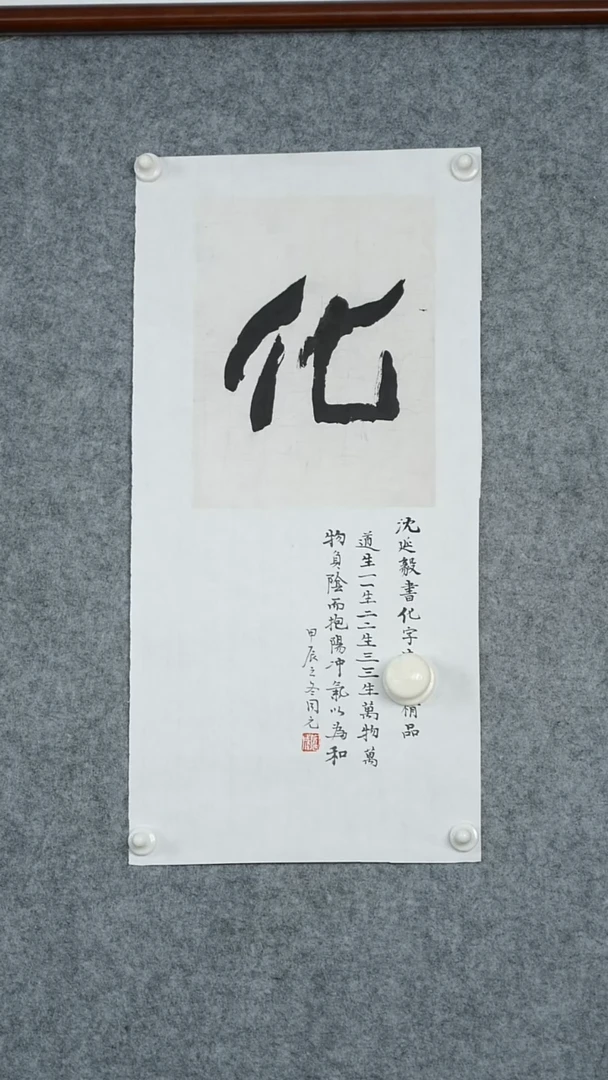 化
沈延毅書化字 精品
道生一一生二二生三三生萬物萬
物負陰而抱陽冲氣以為和
甲辰之冬周元